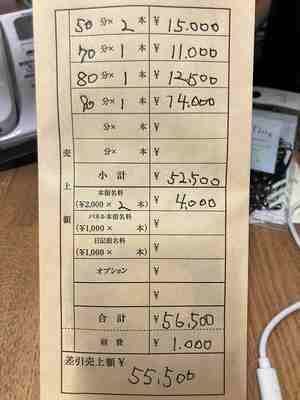 50分× 2 本 ¥ 15.000
70分× 1 本 ¥ 11.000
80分× 1 本 ¥ 12,500
90分× 1 本 ¥ 14.000
分× 本 ¥
分× 本 ¥
売上額
小計 ¥ 52,500
本指名料
(¥2,000× 2 本) ¥ 4,000
パネル本指名料
(¥1,000× 本) ¥
日記指名料
(¥1,000× 本) ¥
オプション ¥
¥
合計 ¥ 56,500
雑費 ¥ 1.000
差引売上額 ¥ 55,500